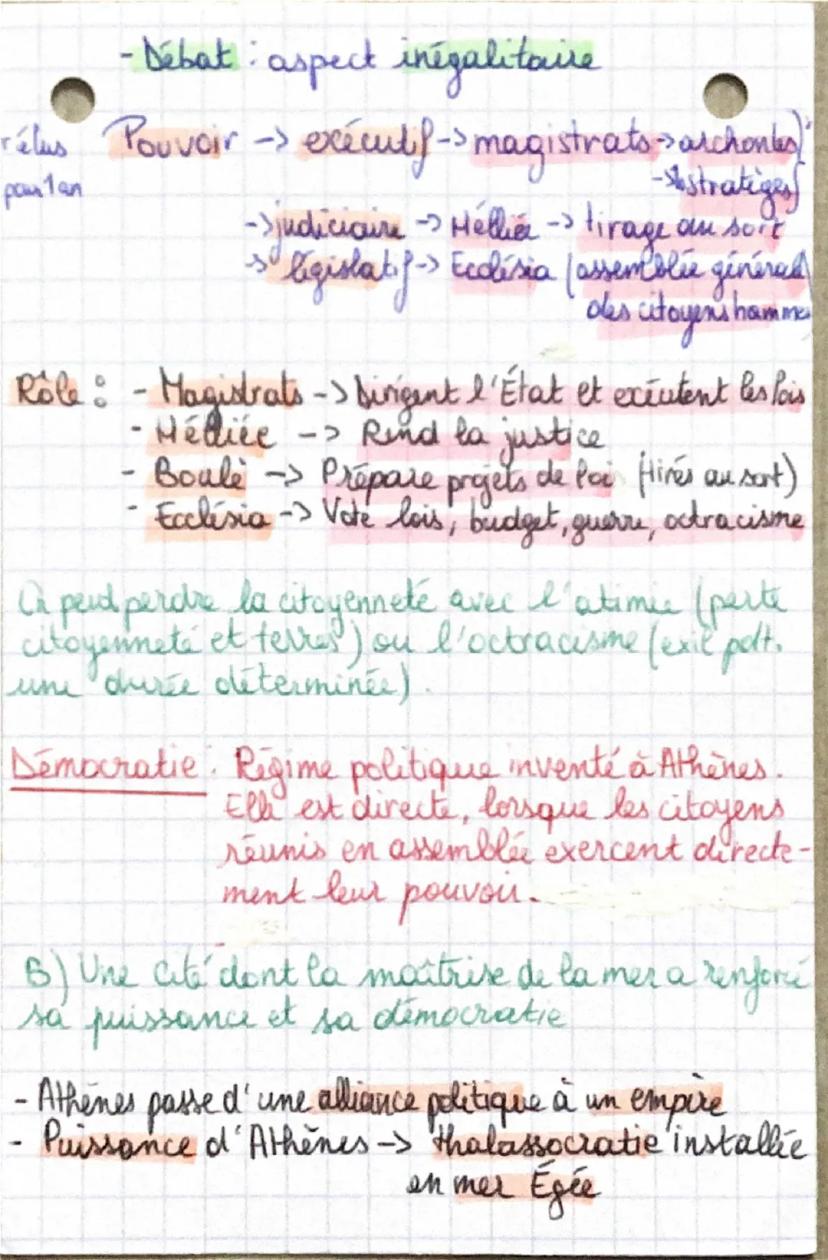 - Débat : aspect inégalitaire
élus Pouvoir -> exécutif -> magistrats -> archontes
pour 1 an -> stratèges
-> judiciaire -> Héliée -> tirage au sort
-> législatif -> Ecclésia (assemblée générale
des citoyens hommes
Rôle : - Magistrats -> Dirigent l'État et exécutent les lois
- Héliée -> Rend la justice
- Boulè -> Prépare projets de loi (tirés au sort)
- Ecclésia -> Vote lois, budget, guerre, octracisme
On peut perdre la citoyenneté avec l'atimie (perte
citoyenneté et terres) ou l'octracisme (exil pdt.
une durée déterminée).
Démocratie : Régime politique inventé à Athènes.
Elle est directe, lorsque les citoyens
réunis en assemblée exercent directe-
ment leur pouvoir.
B) Une cité dont la maîtrise de la mer a renforcé
sa puissance et sa démocratie
- Athènes passe d'une alliance politique à un empire
- Puissance d'Athènes -> thalassocratie installée
en mer Égée